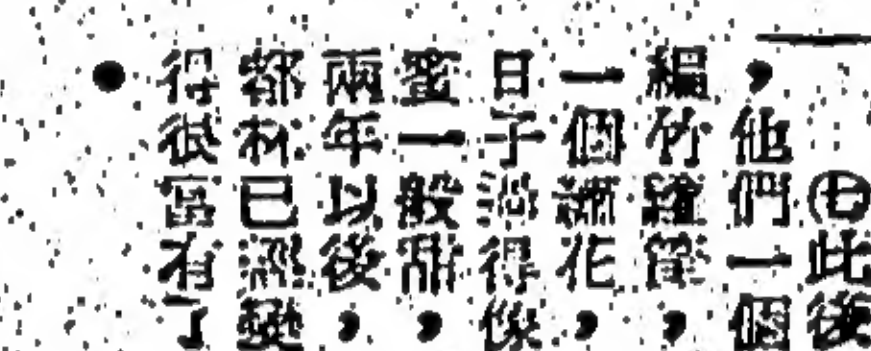 ㊆此後
，他們一個
編竹籮筐，
一個繡花，
日子過得像
蜜一般甜，
兩年以後，
鄰村已經變
得很富有了
●